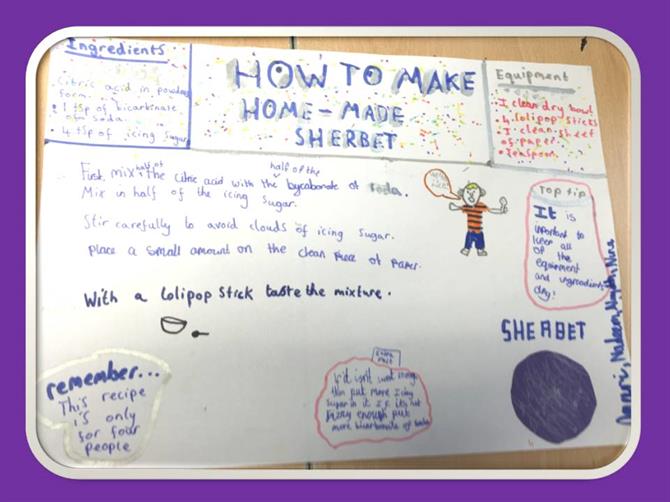 Ingredients
Citric acid in powder
form.
• 1 tsp of bicarbinate
of soda.
• 4 tsp of icing sugar
HOW TO MAKE
HOME-MADE
SHERBET
Equipment
• 1 clean dry bowl
• 4 lolipop sticks
• 1 clean sheet
of paper.
• teaspoon
half of half of the
First, mix the citric acid with the bycabonate of soda.
Mix in half of the icing sugar.
Stir carefully to avoid clouds of icing sugar.
Place a small amount on the clean piece of paper.
With a lolipop stick taste the mixture.
Top tip
It is
important to
keep all
of the
equipment
and ingredients
dry!
SHERBET
remember...
This recipe
is only
for four
people
If it isn't
then put more icing
sugar in it If its not
fizzy enough put
more bicarbonate of soda